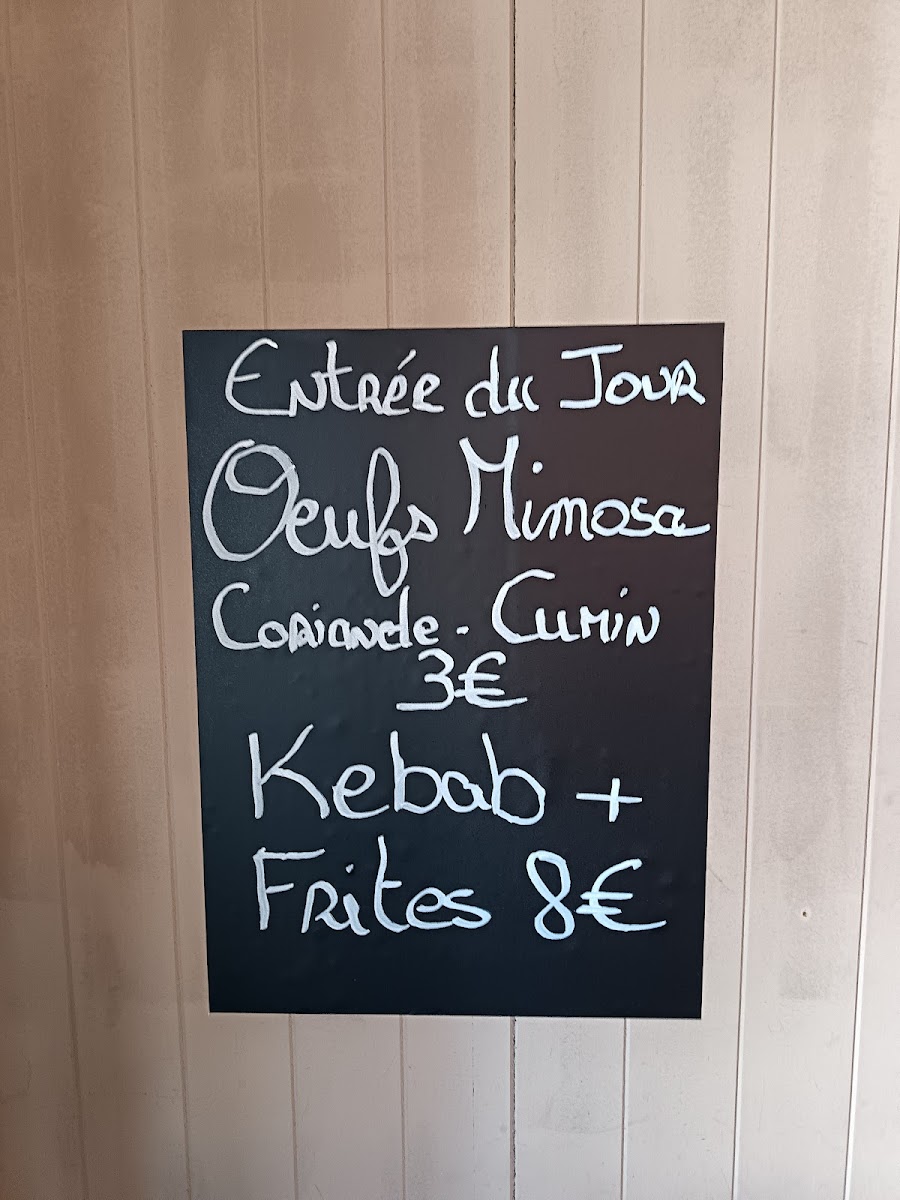 Entrée du Jour
Oeufs Mimosa
Coriande - Cumin
3€
Kebab +
Frites 8€